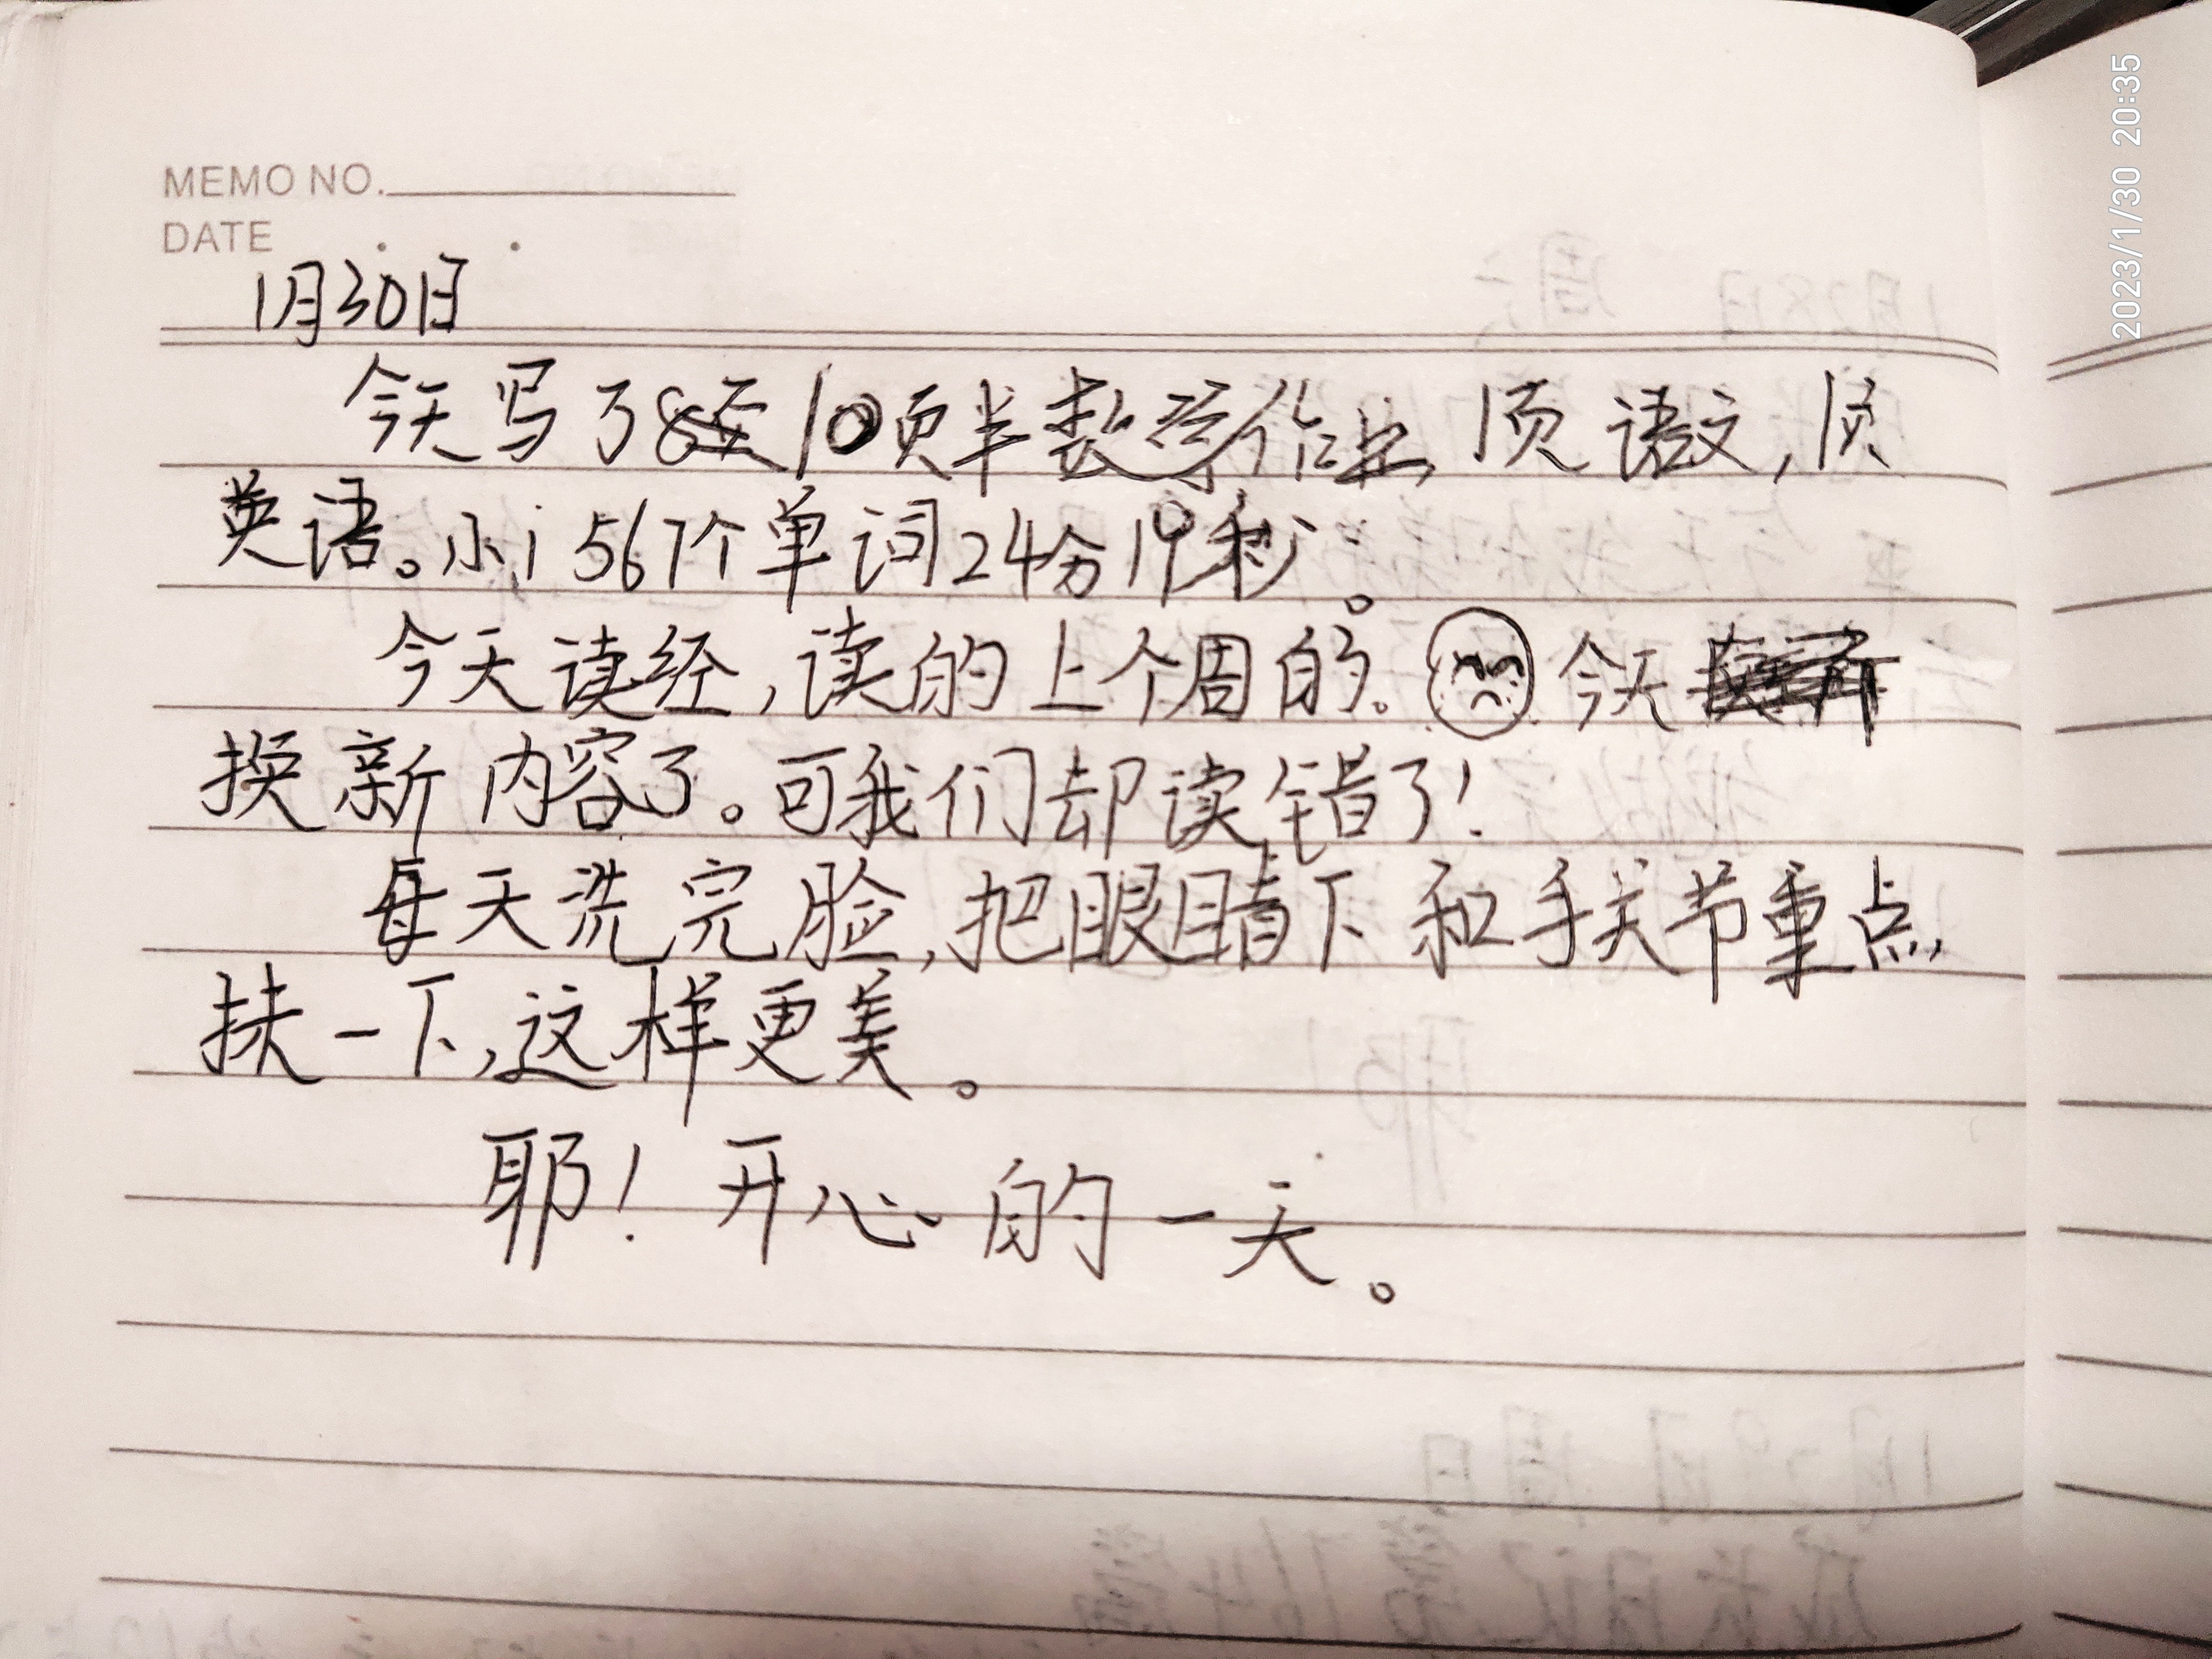 MEMO NO.
DATE
1月30日
今天写了10页半数学作业，1页语文，1页
英语。小i 567个单词24分19秒。
今天读经，读的上个周的。今天
换新内容了。可我们却读错了！
每天洗完脸，把眼睛下和手关节重点
扶一下，这样更美。
耶！开心的一天。
2023/1/30 20:35